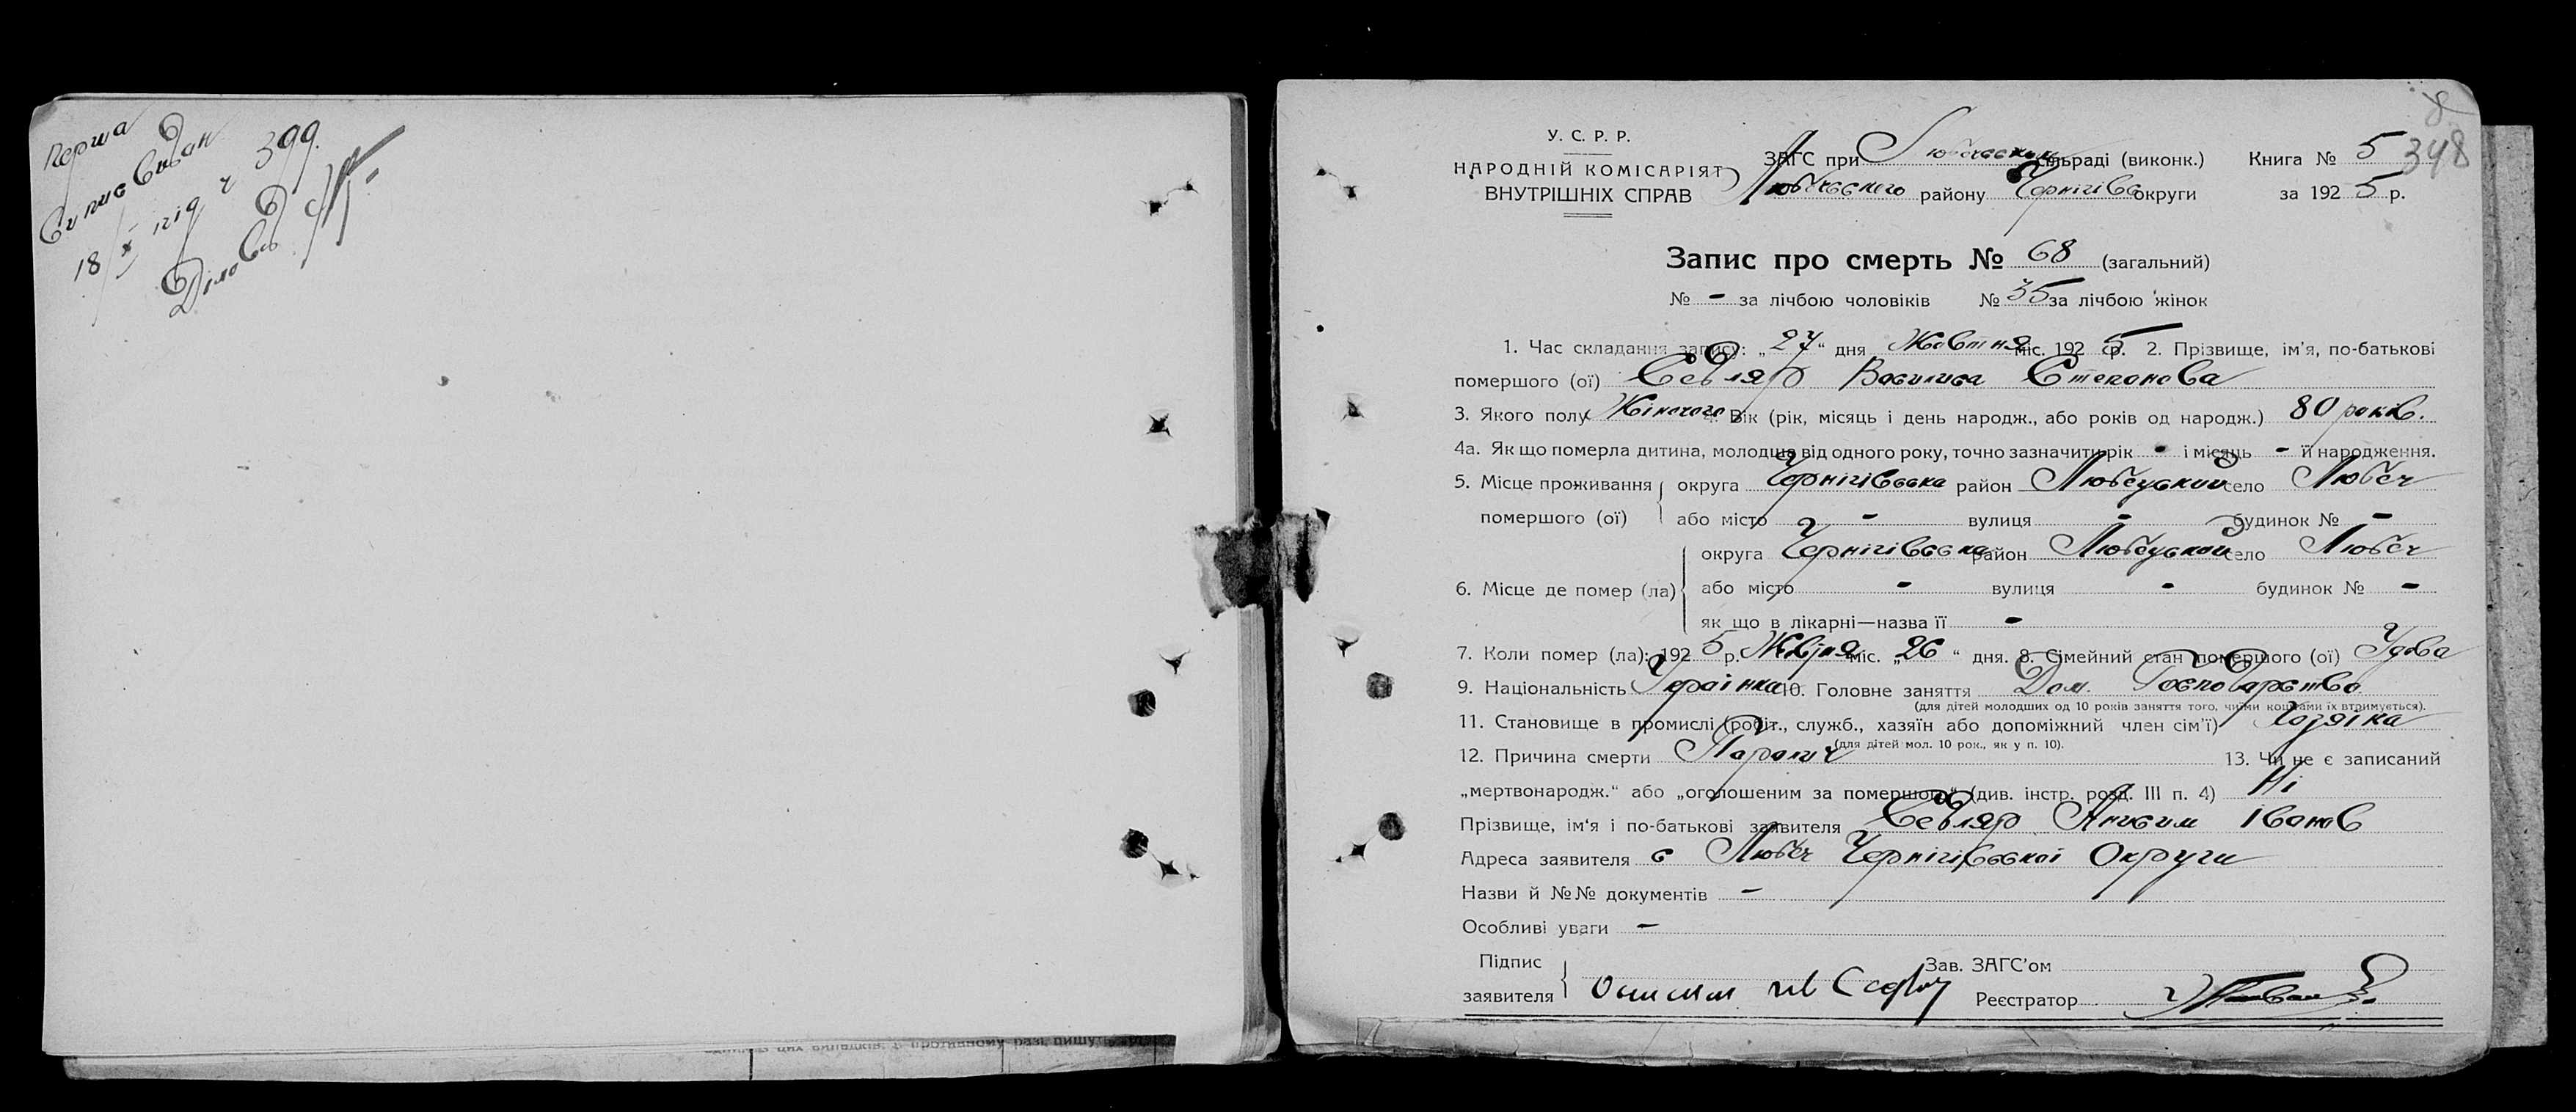 перша
випись видан
18/X під ч 399.
Діловод
У. С. Р. Р.
НАРОДНІЙ КОМІСАРІЯТ
ВНУТРІШНІХ СПРАВ
ЗАГС при Любечській сільраді (виконк.) Книга № 5 348
Любечського району Чернігівс округи за 1925 р.
Запис про смерть № 68 (загальний)
№ - за лічбою чоловіків № 35 за лічбою жінок
1. Час складання запису: „27“ дня Жовтня міс. 1925 р. 2. Прізвище, ім'я, по-батькові
помершого (ої) Седляр Василиса Степанова
3. Якого полу Жіночого 4. Вік (рік, місяць і день народж., або років од народж.) 80 років.
4а. Як що померла дитина, молодша від одного року, точно зазначити рік - і місяць - її народження.
5. Місце проживання округа Чернігівська район Любецький село Любеч
помершого (ої) або місто - вулиця - будинок № -
округа Чернігівська район Любецький село Любеч
6. Місце де помер (ла) або місто - вулиця - будинок № -
як що в лікарні—назва її -
7. Коли помер (ла): 1925 р. міс. „26“ дня. 8. Сімейний стан помершого (ої) Удова
9. Національність Українка 10. Головне заняття Дом. Господарство
(для дітей молодших од 10 років заняття того, чиїми коштами їх втримується).
11. Становище в промислі (робіт., служб., хазяїн або допоміжний член сім'ї) Хозяїка
(для дітей мол. 10 рок., як у п. 10).
12. Причина смерти Параліч 13. Чи не є записаний
„мертвонародж.“ або „оголошеним за помершого“ (див. інстр. розд. III п. 4) Ні
Прізвище, ім'я і по-батькові заявителя Седляр Анисим Іванов
Адреса заявителя с Любеч Чернігівської Округи
Назви й №№ документів -
Особливі уваги -
Підпис Зав. ЗАГС'ом
заявителя Реєстратор